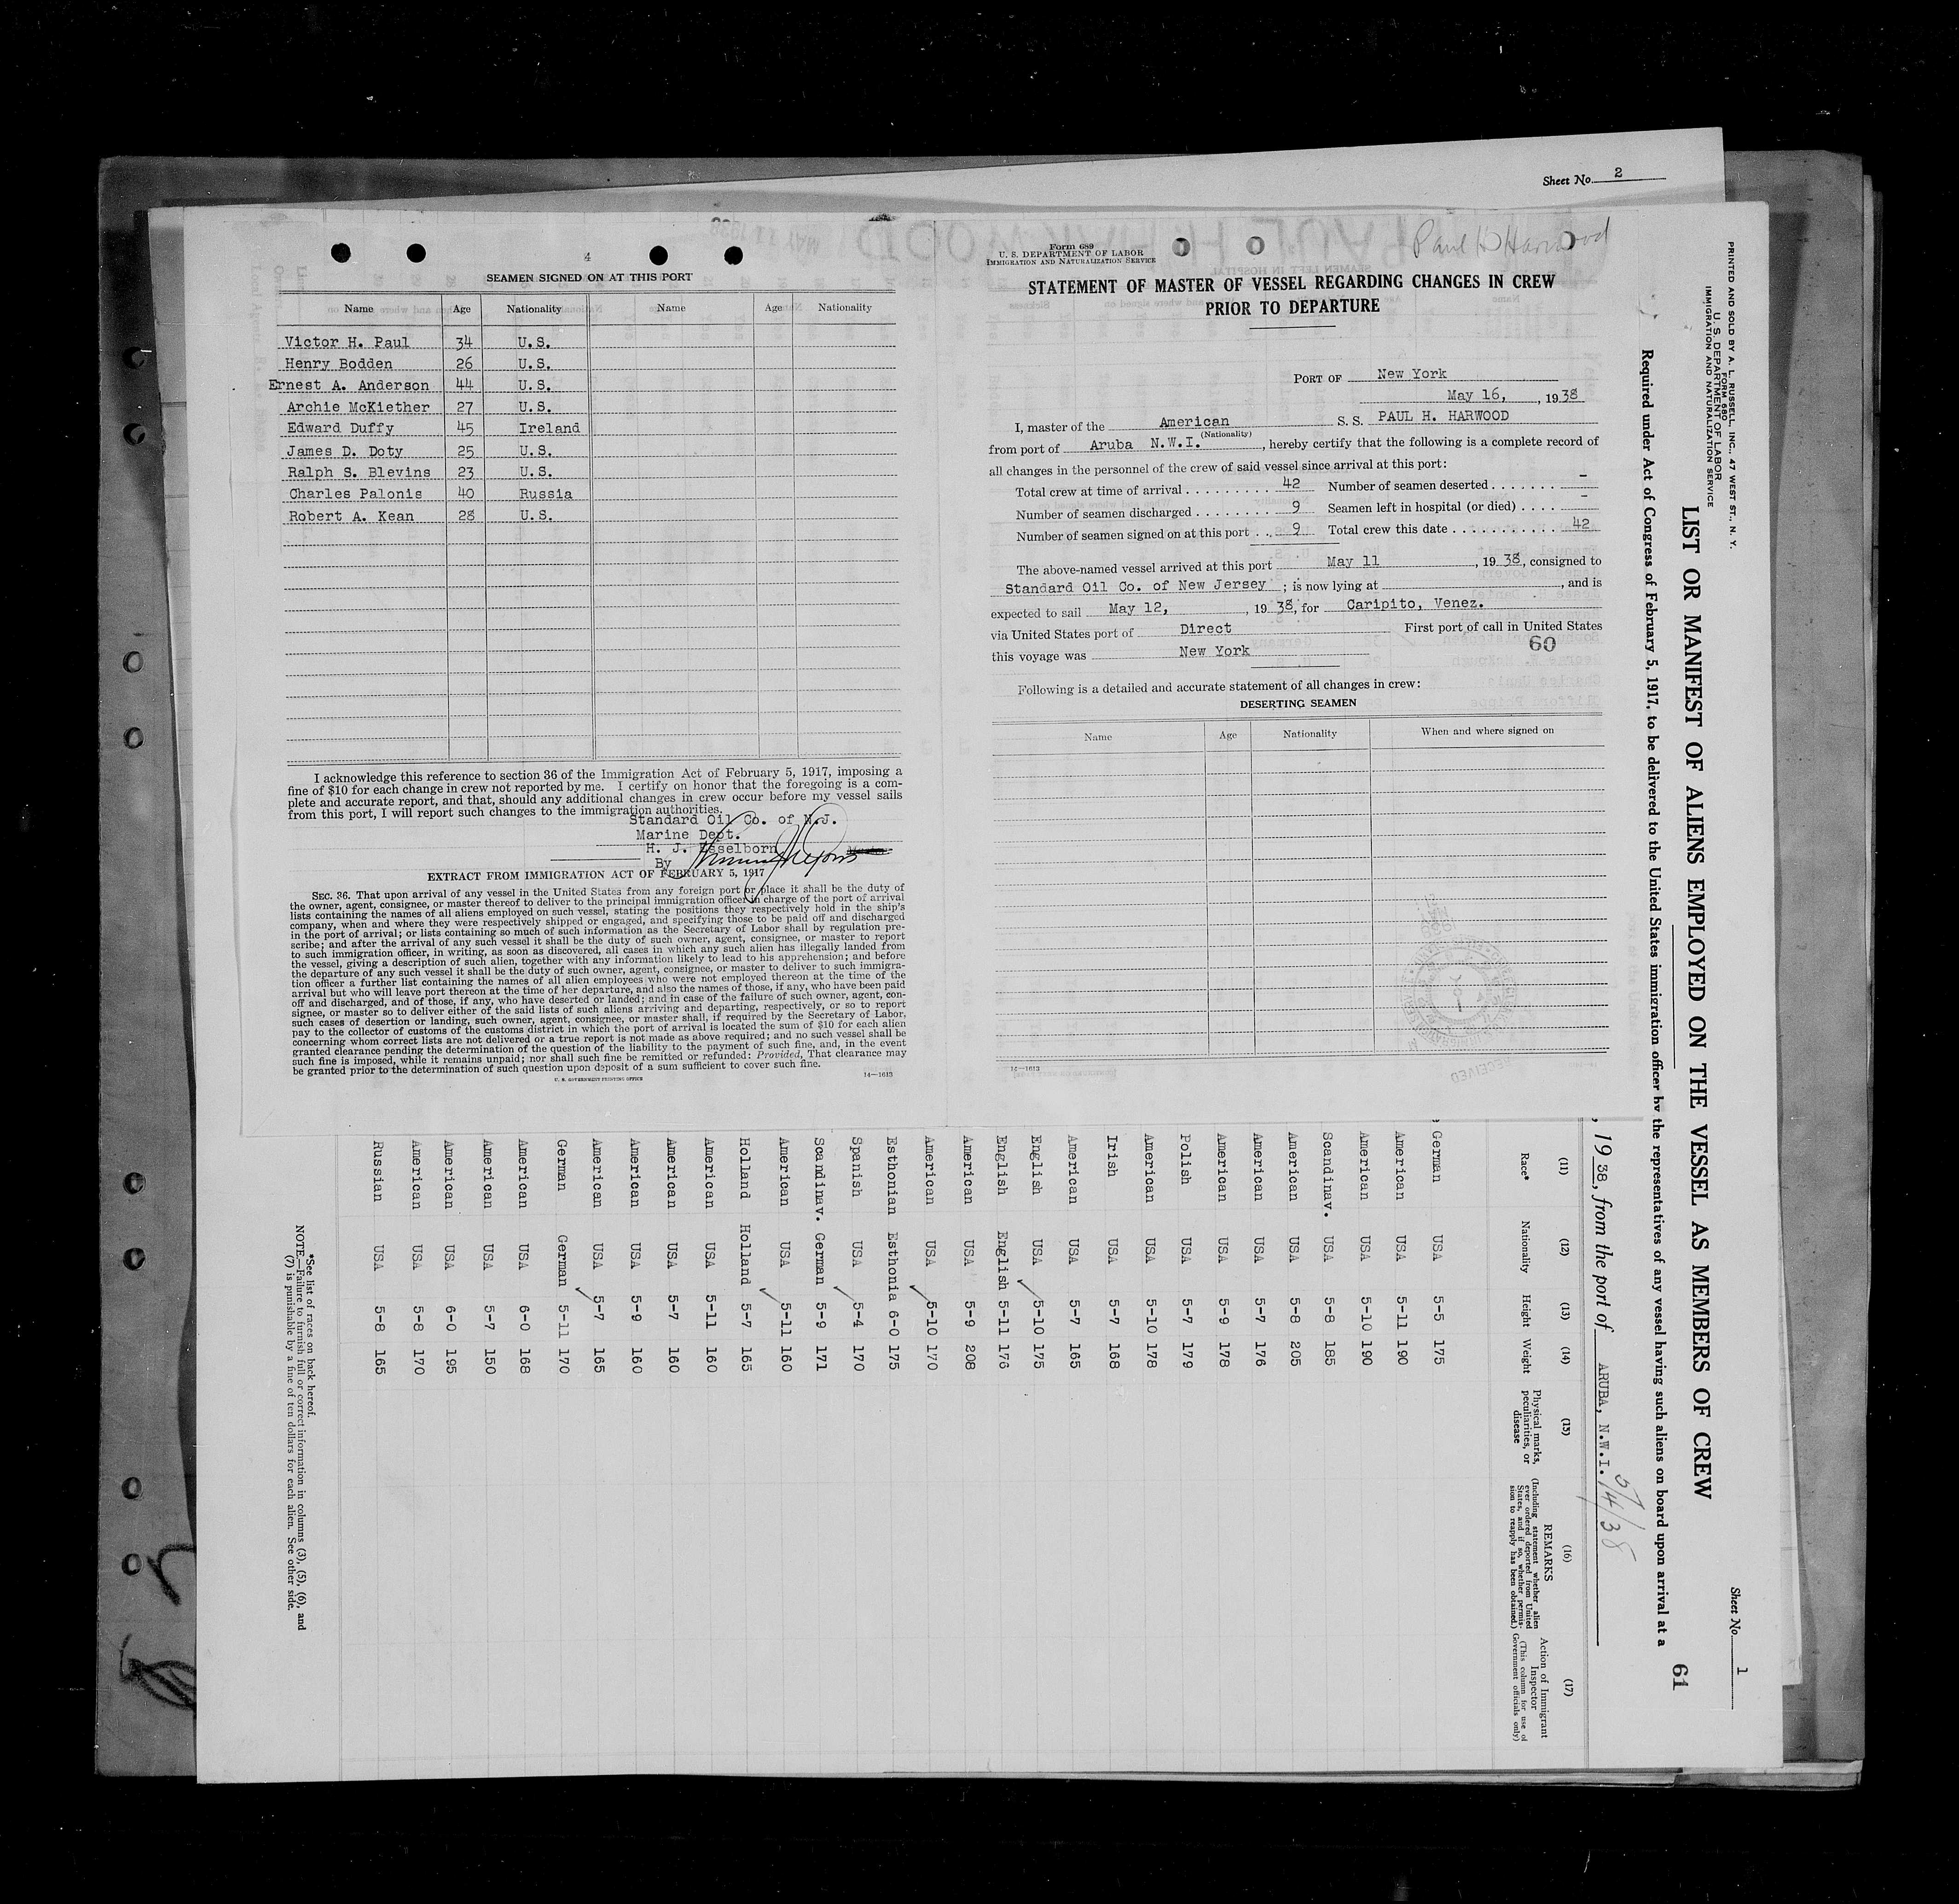 Sheet No. 2
4
SEAMEN SIGNED ON AT THIS PORT
Name Age Nationality Name Age Nationality
Victor H. Paul 34 U.S.
Henry Bodden 26 U.S.
Ernest A. Anderson 44 U.S.
Archie McKiether 27 U.S.
Edward Duffy 45 Ireland
James D. Doty 25 U.S.
Ralph S. Blevins 23 U.S.
Charles Palonis 40 Russia
Robert A. Kean 28 U.S.
I acknowledge this reference to section 36 of the Immigration Act of February 5, 1917, imposing a
fine of $10 for each change in crew not reported by me. I certify on honor that the foregoing is a com-
plete and accurate report, and that, should any additional changes in crew occur before my vessel sails
from this port, I will report such changes to the immigration authorities.
Standard Oil Co. of N.J.
Marine Dept.
H. J. Esselborn
By
EXTRACT FROM IMMIGRATION ACT OF FEBRUARY 5, 1917
SEC. 36. That upon arrival of any vessel in the United States from any foreign port or place it shall be the duty of
the owner, agent, consignee, or master thereof to deliver to the principal immigration officer in charge of the port of arrival
lists containing the names of all aliens employed on such vessel, stating the positions they respectively hold in the ship's
company, when and where they were respectively shipped or engaged, and specifying those to be paid off and discharged
in the port of arrival; or lists containing so much of such information as the Secretary of Labor shall by regulation pre-
scribe; and after the arrival of any such vessel it shall be the duty of such owner, agent, consignee, or master to report
to such immigration officer, in writing, as soon as discovered, all cases in which any such alien has illegally landed from
the vessel, giving a description of such alien, together with any information likely to lead to his apprehension; and before
the departure of any such vessel it shall be the duty of such owner, agent, consignee, or master to deliver to such immigra-
tion officer a further list containing the names of all alien employees who were not employed thereon at the time of the
arrival but who will leave port thereon at the time of her departure, and also the names of those, if any, who have been paid
off and discharged, and of those, if any, who have deserted or landed; and in case of the failure of such owner, agent, con-
signee, or master so to deliver either of the said lists of such aliens arriving and departing, respectively, or so to report
such cases of desertion or landing, such owner, agent, consignee, or master shall, if required by the Secretary of Labor,
pay to the collector of customs of the customs district in which the port of arrival is located the sum of $10 for each alien
concerning whom correct lists are not delivered or a true report is not made as above required; and no such vessel shall be
granted clearance pending the determination of the question of the liability to the payment of such fine, and, in the event
such fine is imposed, while it remains unpaid; nor shall such fine be remitted or refunded: Provided, That clearance may
be granted prior to the determination of such question upon deposit of a sum sufficient to cover such fine.
U. S. GOVERNMENT PRINTING OFFICE 14—1613
Form 689
U. S. DEPARTMENT OF LABOR
IMMIGRATION AND NATURALIZATION SERVICE
Paul H Harwood
STATEMENT OF MASTER OF VESSEL REGARDING CHANGES IN CREW
PRIOR TO DEPARTURE
PORT OF New York
May 16, , 1938
I, master of the American S. S. PAUL H. HARWOOD
(Nationality)
from port of Aruba N.W.I. , hereby certify that the following is a complete record of
all changes in the personnel of the crew of said vessel since arrival at this port:
Total crew at time of arrival 42 Number of seamen deserted -
Number of seamen discharged 9 Seamen left in hospital (or died) -
Number of seamen signed on at this port 9 Total crew this date 42
The above-named vessel arrived at this port May 11 , 1938, consigned to
Standard Oil Co. of New Jersey ; is now lying at , and is
expected to sail May 12, , 1938, for Caripito, Venez.
via United States port of Direct First port of call in United States
this voyage was New York
60
Following is a detailed and accurate statement of all changes in crew:
DESERTING SEAMEN
Name Age Nationality When and where signed on
14—1613
PRINTED AND SOLD BY A. L. RUSSELL, INC., 47 WEST ST., N. Y.
FORM 680
U. S. DEPARTMENT OF LABOR
IMMIGRATION AND NATURALIZATION SERVICE
Sheet No. 1
LIST OR MANIFEST OF ALIENS EMPLOYED ON THE VESSEL AS MEMBERS OF CREW
61
Required under Act of Congress of February 5, 1917, to be delivered to the United States immigration officer by the representatives of any vessel having such aliens on board upon arrival at a
, 1938, from the port of ARUBA, N.W.I. 5/4/38
(11) (12) (13) (14) (15) (16) (17)
Race* Nationality Height Weight Physical marks, peculiarities, or disease REMARKS (Including statement whether alien ever ordered deported from United States, and if so, whether permission to reapply has been obtained.) Action of Immigrant Inspector (This column for use of Government officials only)
German USA 5-5 175
American USA 5-11 190
American USA 5-10 190
Scandinav. USA 5-8 185
American USA 5-8 205
American USA 5-7 176
American USA 5-9 178
Polish USA 5-7 179
American USA 5-10 178
Irish USA 5-7 168
American USA 5-7 165
English USA 5-10 175
English English 5-11 176
American USA 5-9 208
American USA 5-10 170
Esthonian Esthonia 6-0 175
Spanish USA 5-4 170
Scandinav. German 5-9 171
American USA 5-11 160
Holland Holland 5-7 165
American USA 5-11 160
American USA 5-7 160
American USA 5-9 160
American USA 5-7 165
German German 5-11 170
American USA 6-0 168
American USA 5-7 150
American USA 6-0 195
American USA 5-8 170
Russian USA 5-8 165
*See list of races on back hereof.
NOTE.—Failure to furnish full or correct information in columns (3), (5), (6), and
(7) is punishable by a fine of ten dollars for each alien. See other side.